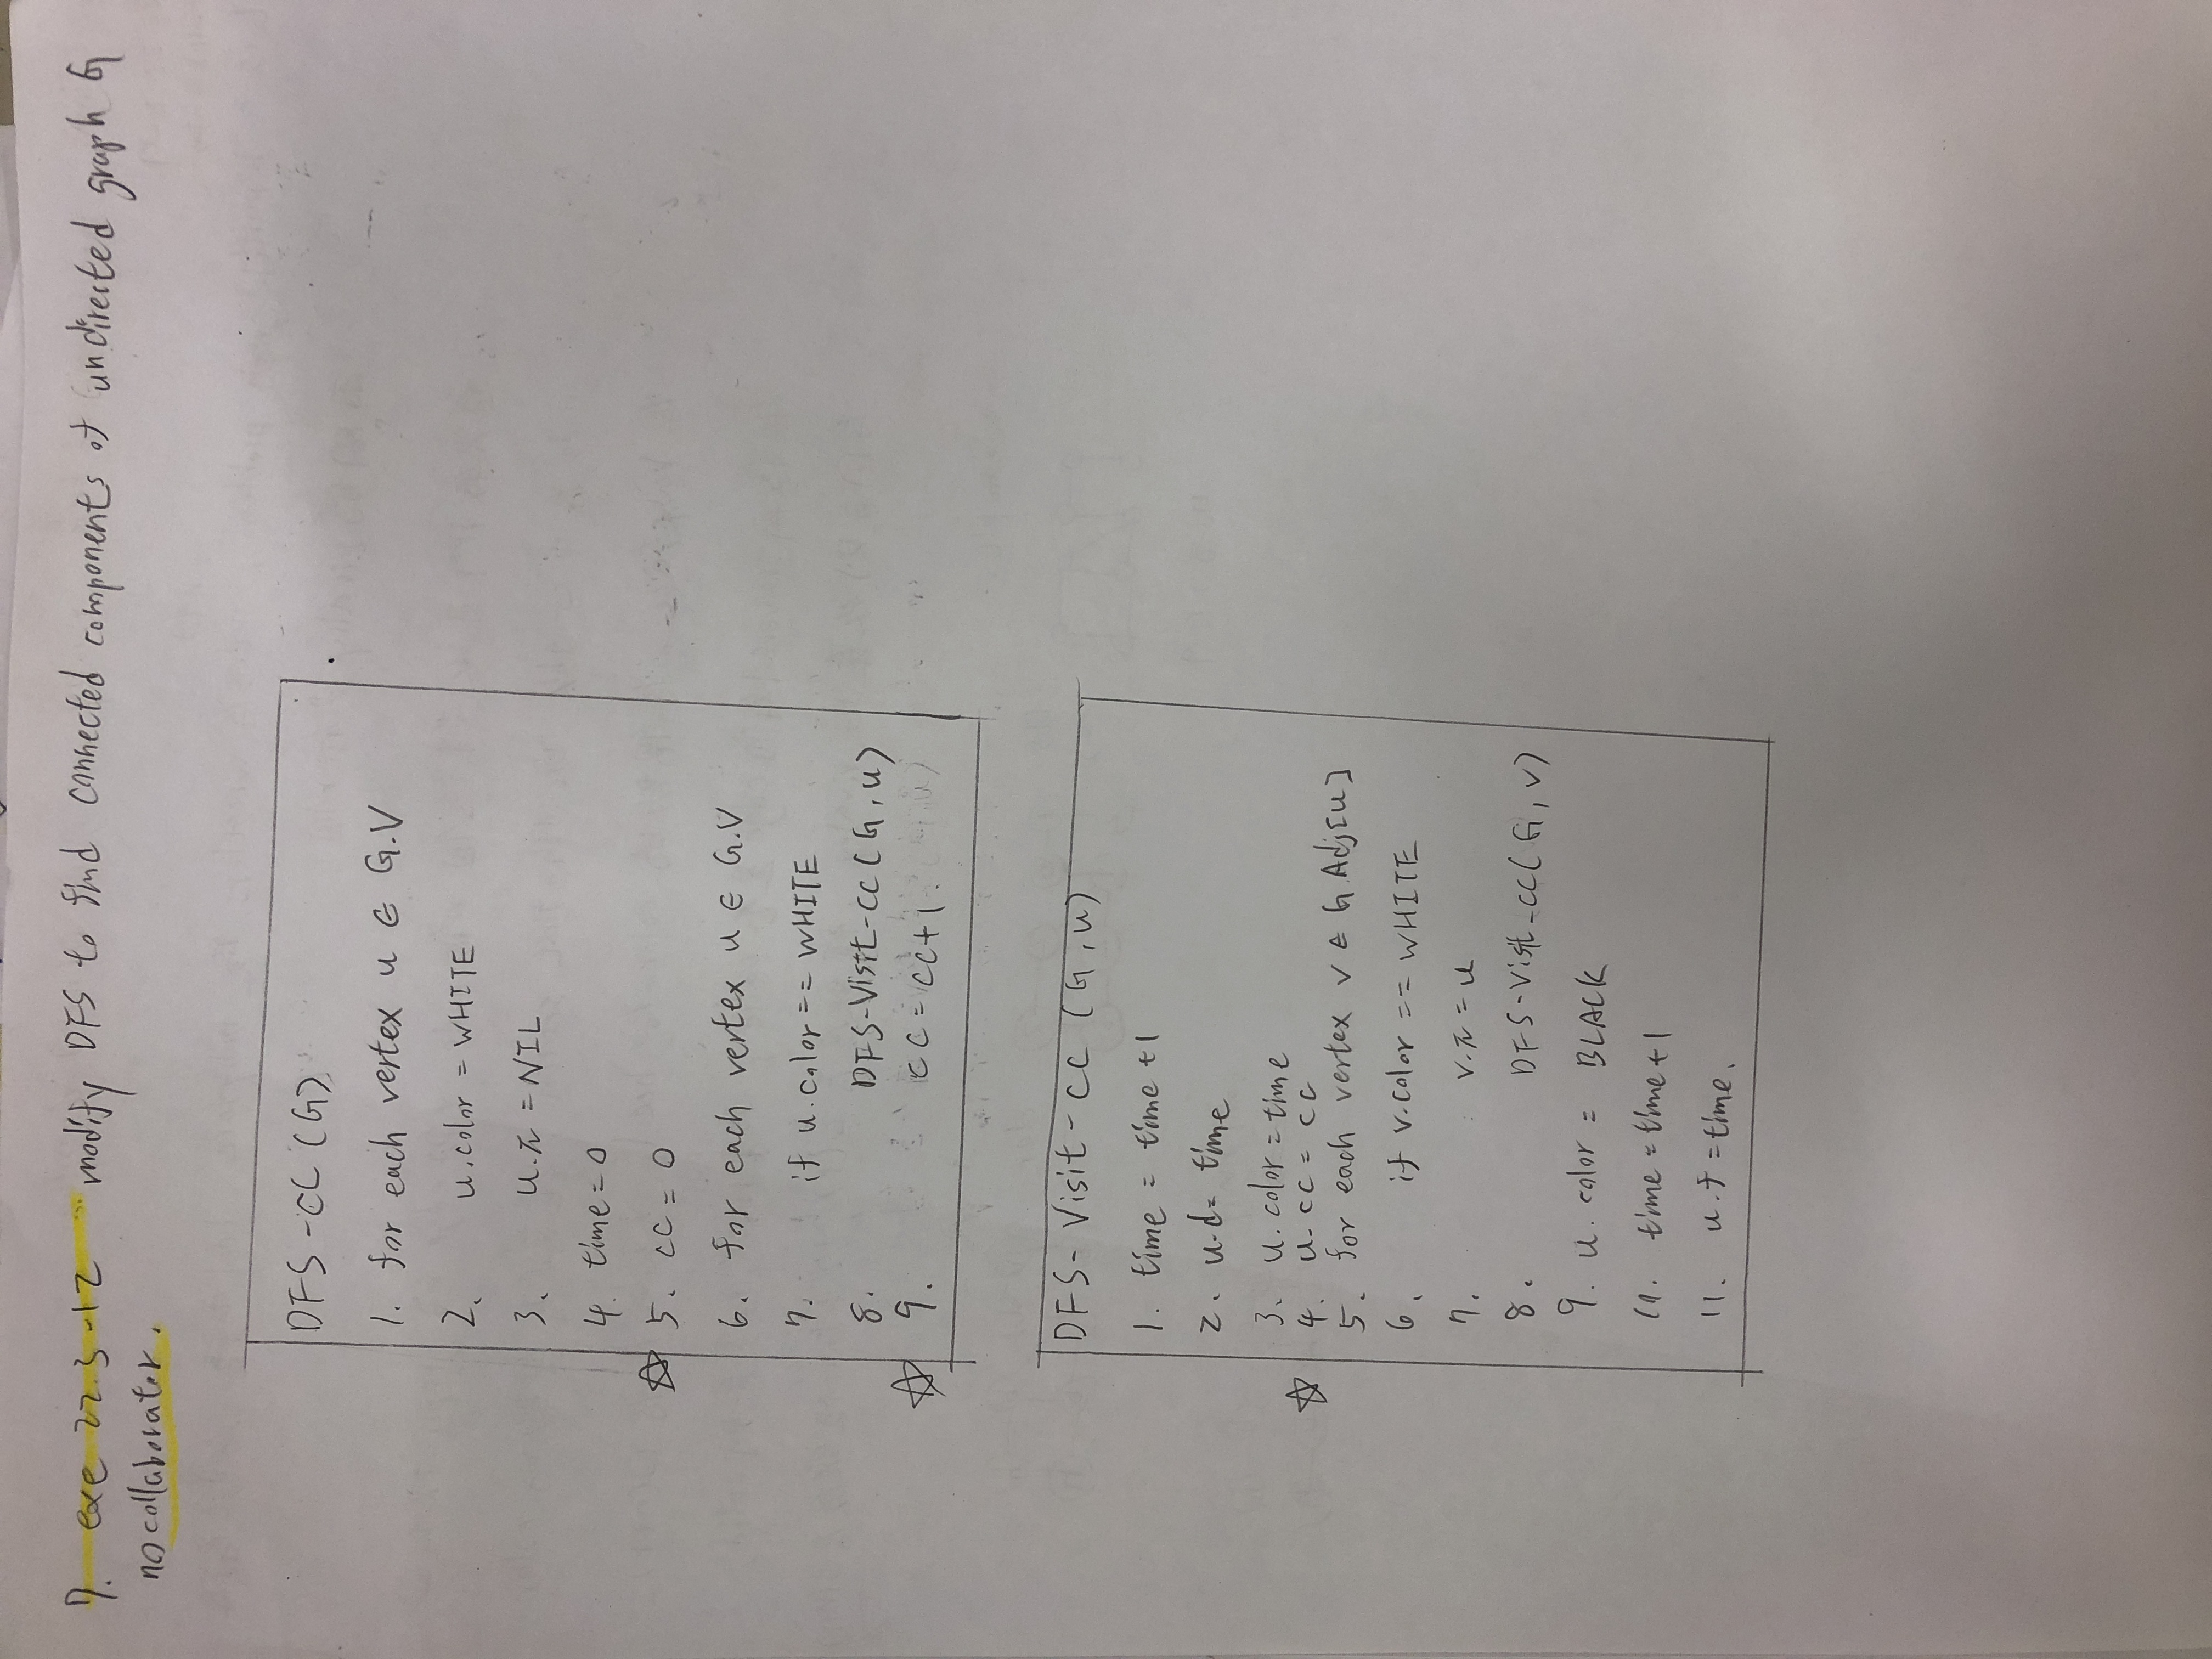 7. exe 22.3-12 modify DFS to find connected components of undirected graph G
no collaborator.
DFS-CC (G)
1. for each vertex u ∈ G.V
2. u.color = WHITE
3. u.π = NIL
4. time = 0
☆ 5. cc = 0
6. for each vertex u ∈ G.V
7. if u.color == WHITE
8. DFS-Visit-CC (G, u)
☆ 9. cc = cc+1.
DFS-Visit-CC (G, u)
1. time = time +1
2. u.d = time
3. u.color = time
☆ 4. u.cc = cc
5. for each vertex v ∈ G.Adj[u]
6. if v.color == WHITE
7. v.π = u
8. DFS-Visit-CC (G, v)
9. u.color = BLACK
10. time = time +1
11. u.f = time.